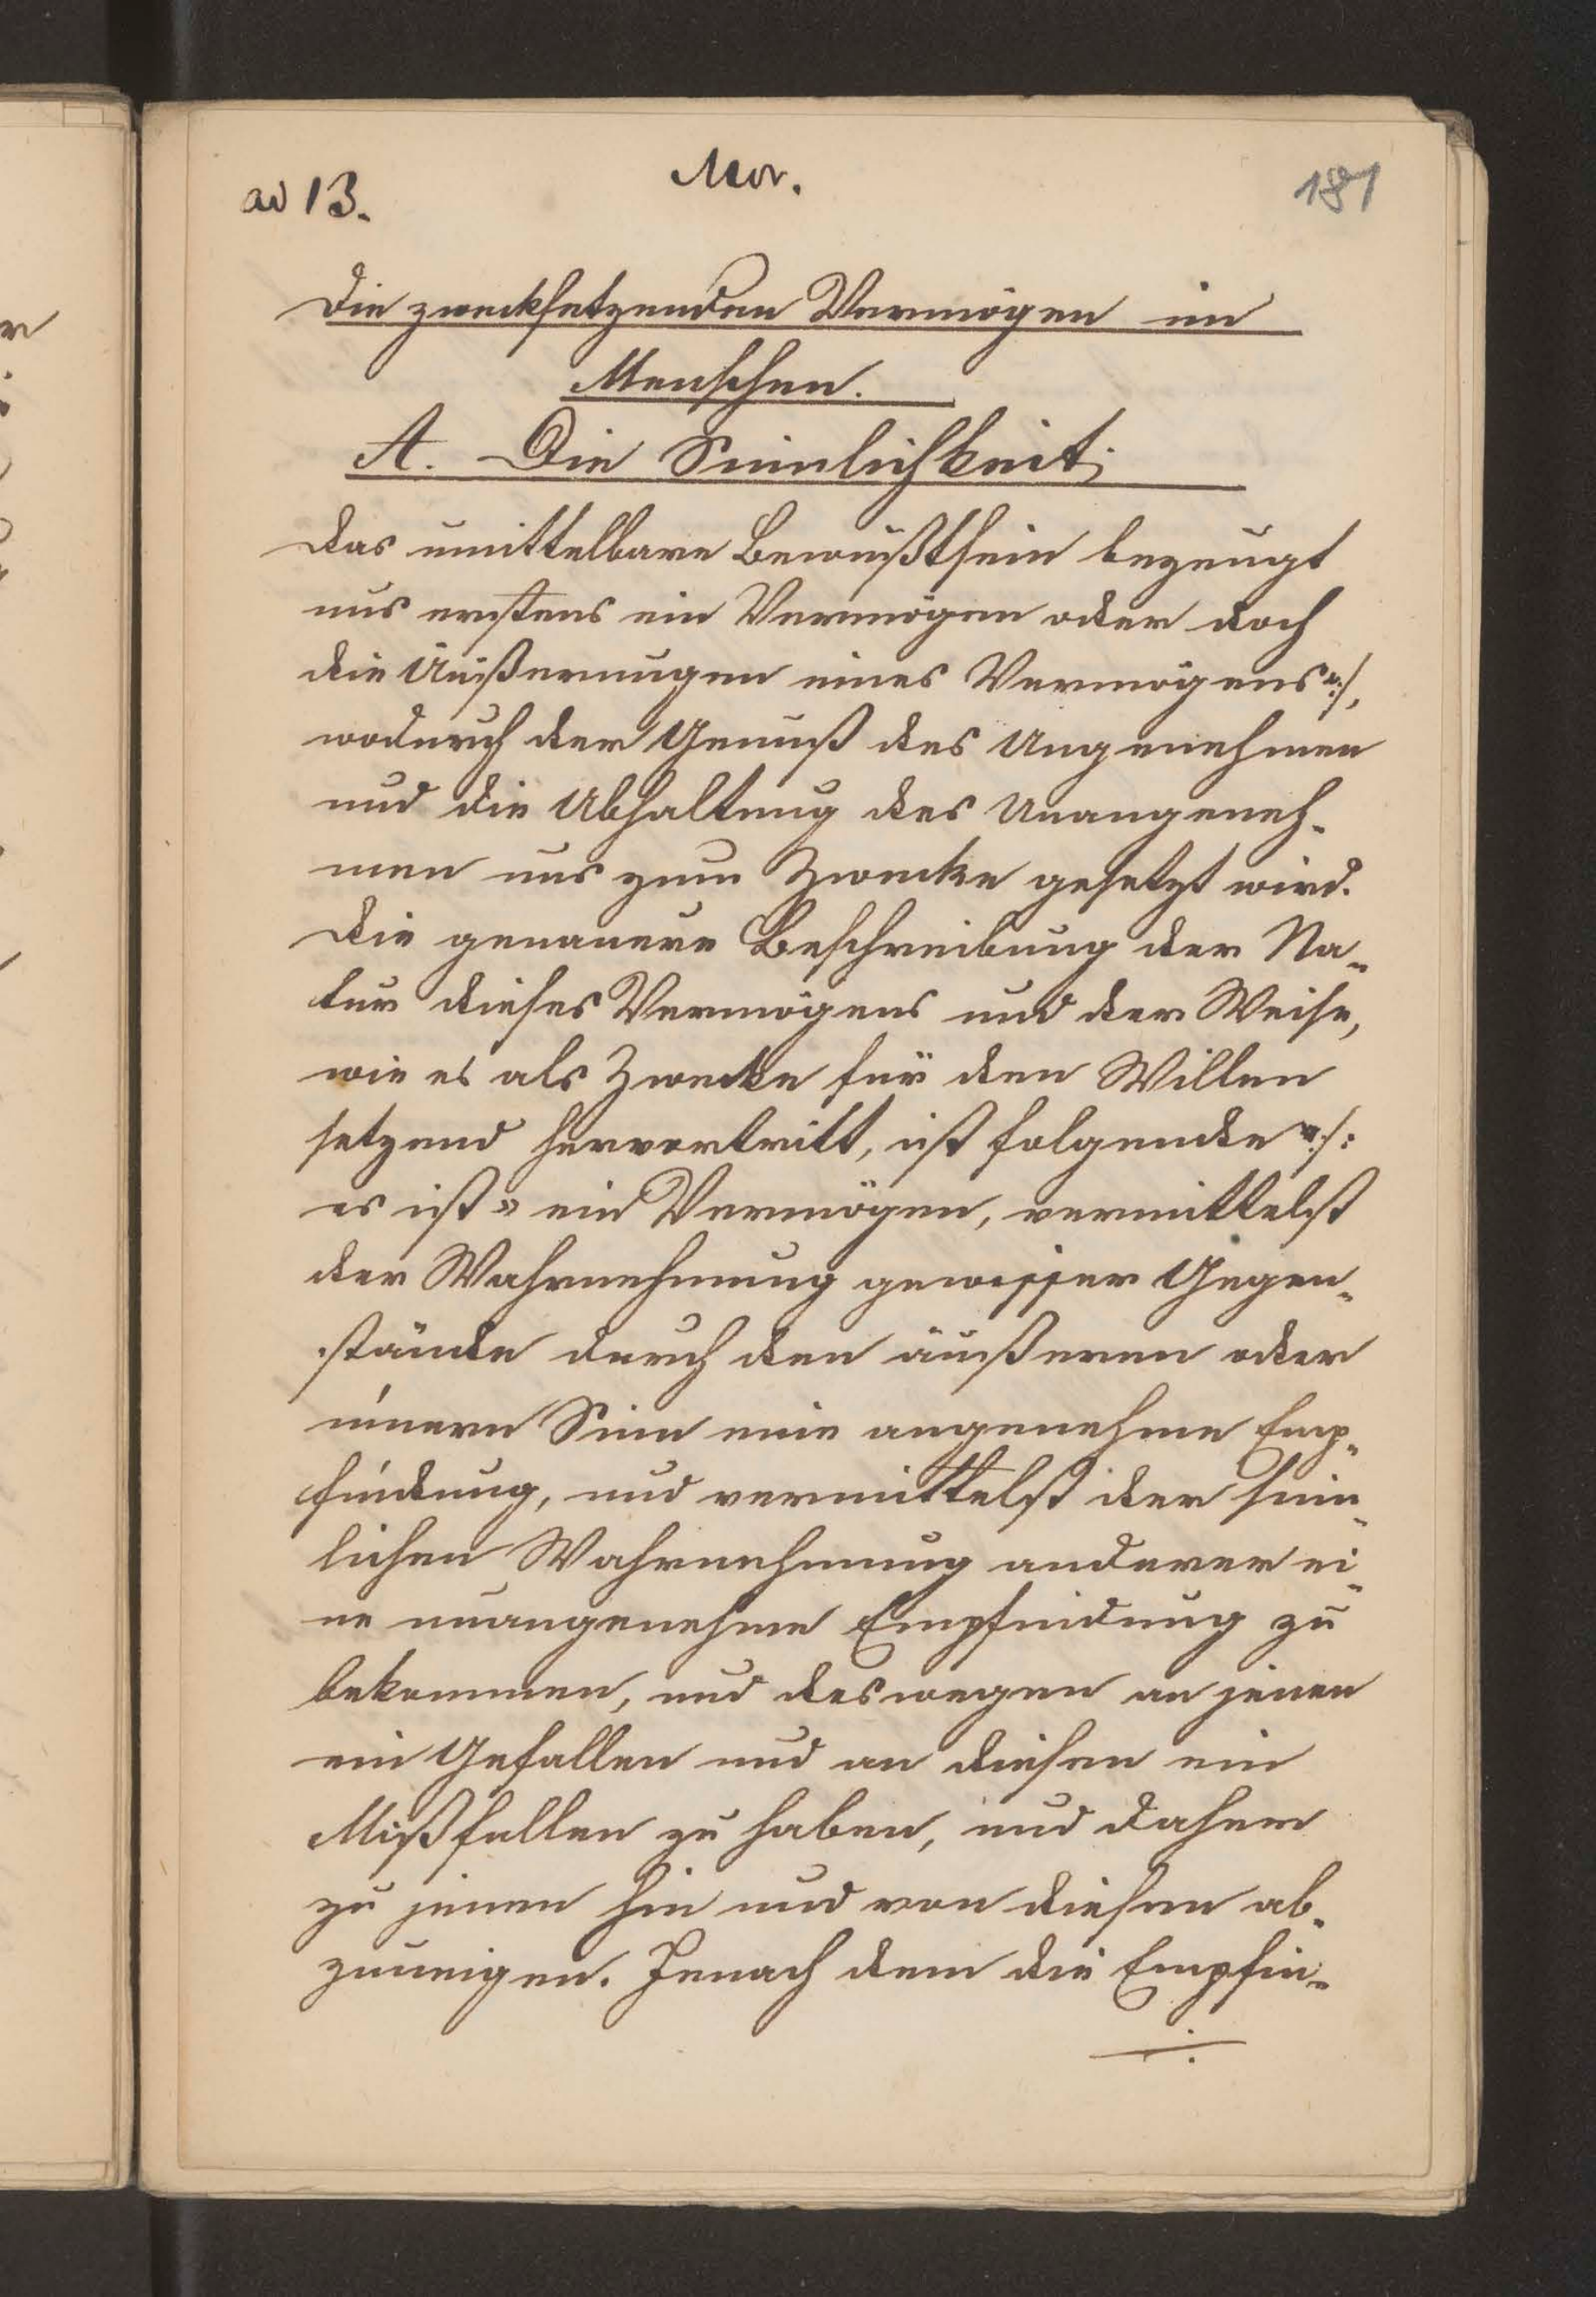 ad 13.
Mor.
181
Die zwecksetzenden Vermögen im
Menschen.
A. Die Sinnlichkeit;
Das unmittelbare Bewußtsein bezeugt
uns erstens ein Vermögen oder doch
die Äußerungen eines Vermögens ./.,
wodurch der Genuß des Angenehmen
und die Abhaltung des Unangeneh-
men uns zum Zwecke gesetzt wird.
Die genauere Beschreibung der Na-
tur dieses Vermögens und der Weise,
wie es als Zwecke für den Willen
setzend hervortritt, ist folgende ./.:
es ist ein Vermögen, vermittelst
der Wahrnehmung gewisser Gegen-
stände durch den äußeren oder
innern Sinn eine angenehme Emp-
findung, und vermittelst der sinn-
lichen Wahrnehmung anderer ei-
ne unangenehme Empfindung zu
bekommen, und deswegen an jenen
ein Gefallen und an diesen ein
Mißfallen zu haben, und daher
zu jenen hin und von diesen ab-
zuneigen. Jenach dem die Empfin-